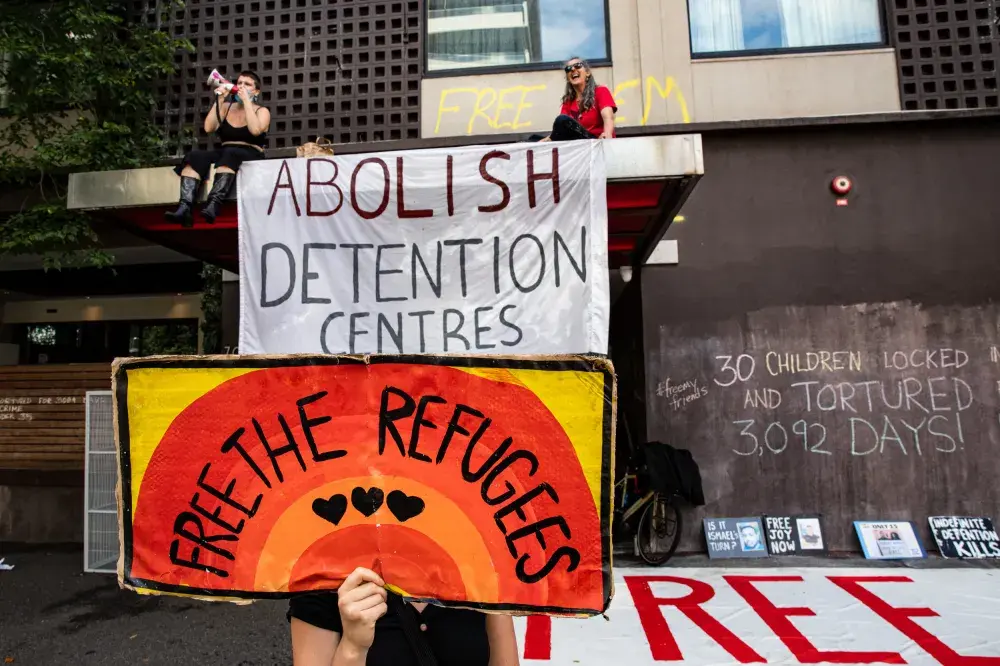 FREE
EM
ABOLISH
DETENTION
CENTRES
FREE THE REFUGEES
#freemy
friends
30 CHILDREN LOCKED IN
AND TORTURED
3,092 DAYS!
CRIME
IS IT
ISMAEL'S
TURN?
FREE
JOY
NOW
INDEFINITE
DETENTION
KILLS
FREE